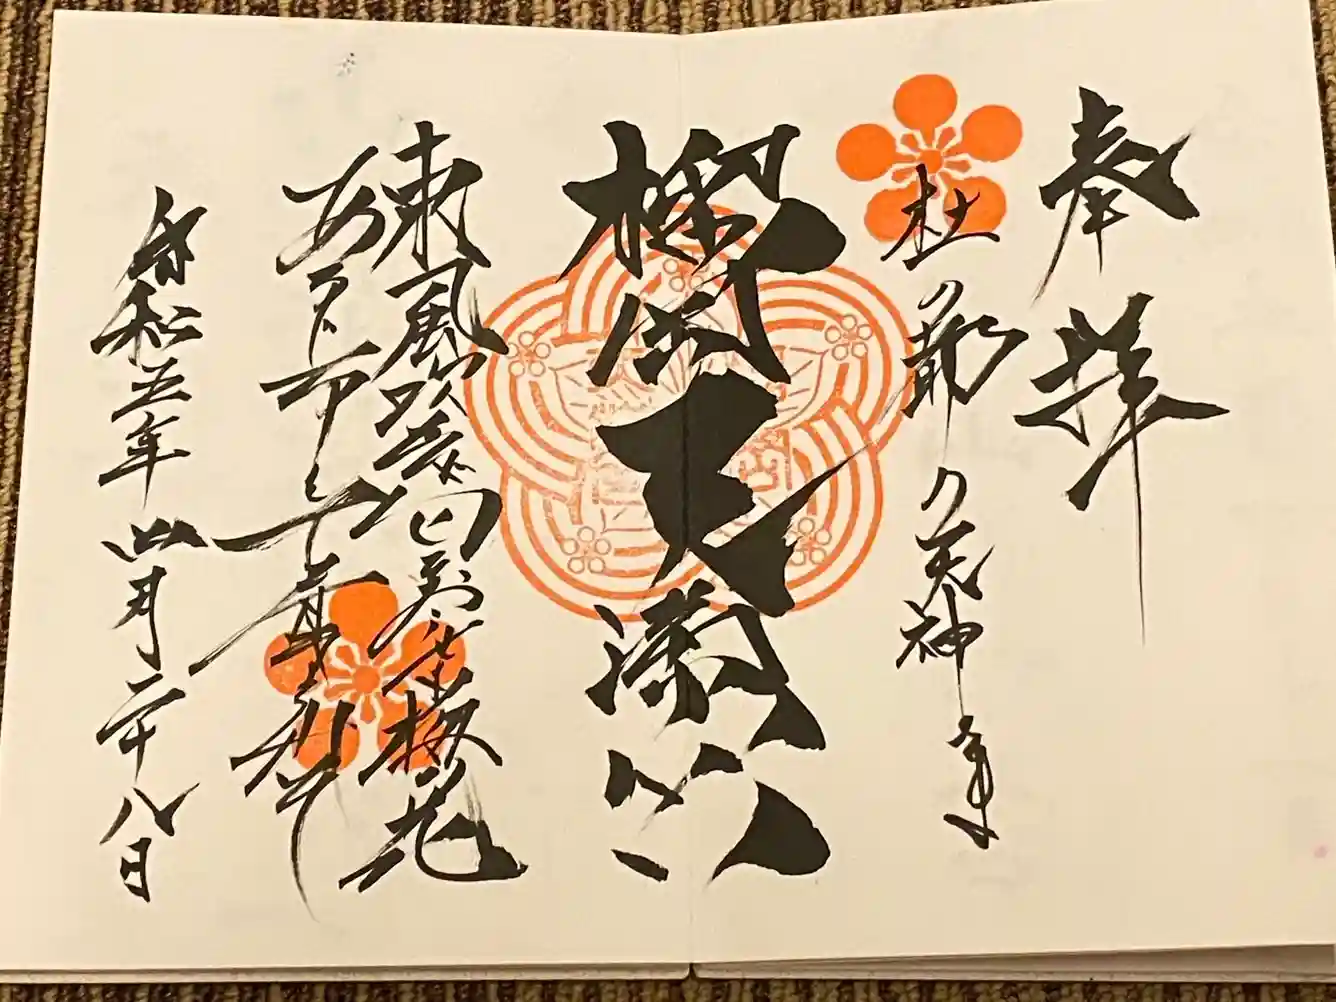 奉拝
杜の都の天神さま
榴岡天満宮
東風吹かば匂ひおこせよ梅の花
あるじなしとて春な忘れそ
令和五年四月二十八日